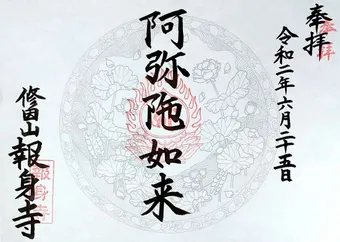 奉拝
令和二年六月二十五日
阿弥陀如来
修田山
報身寺
報身寺